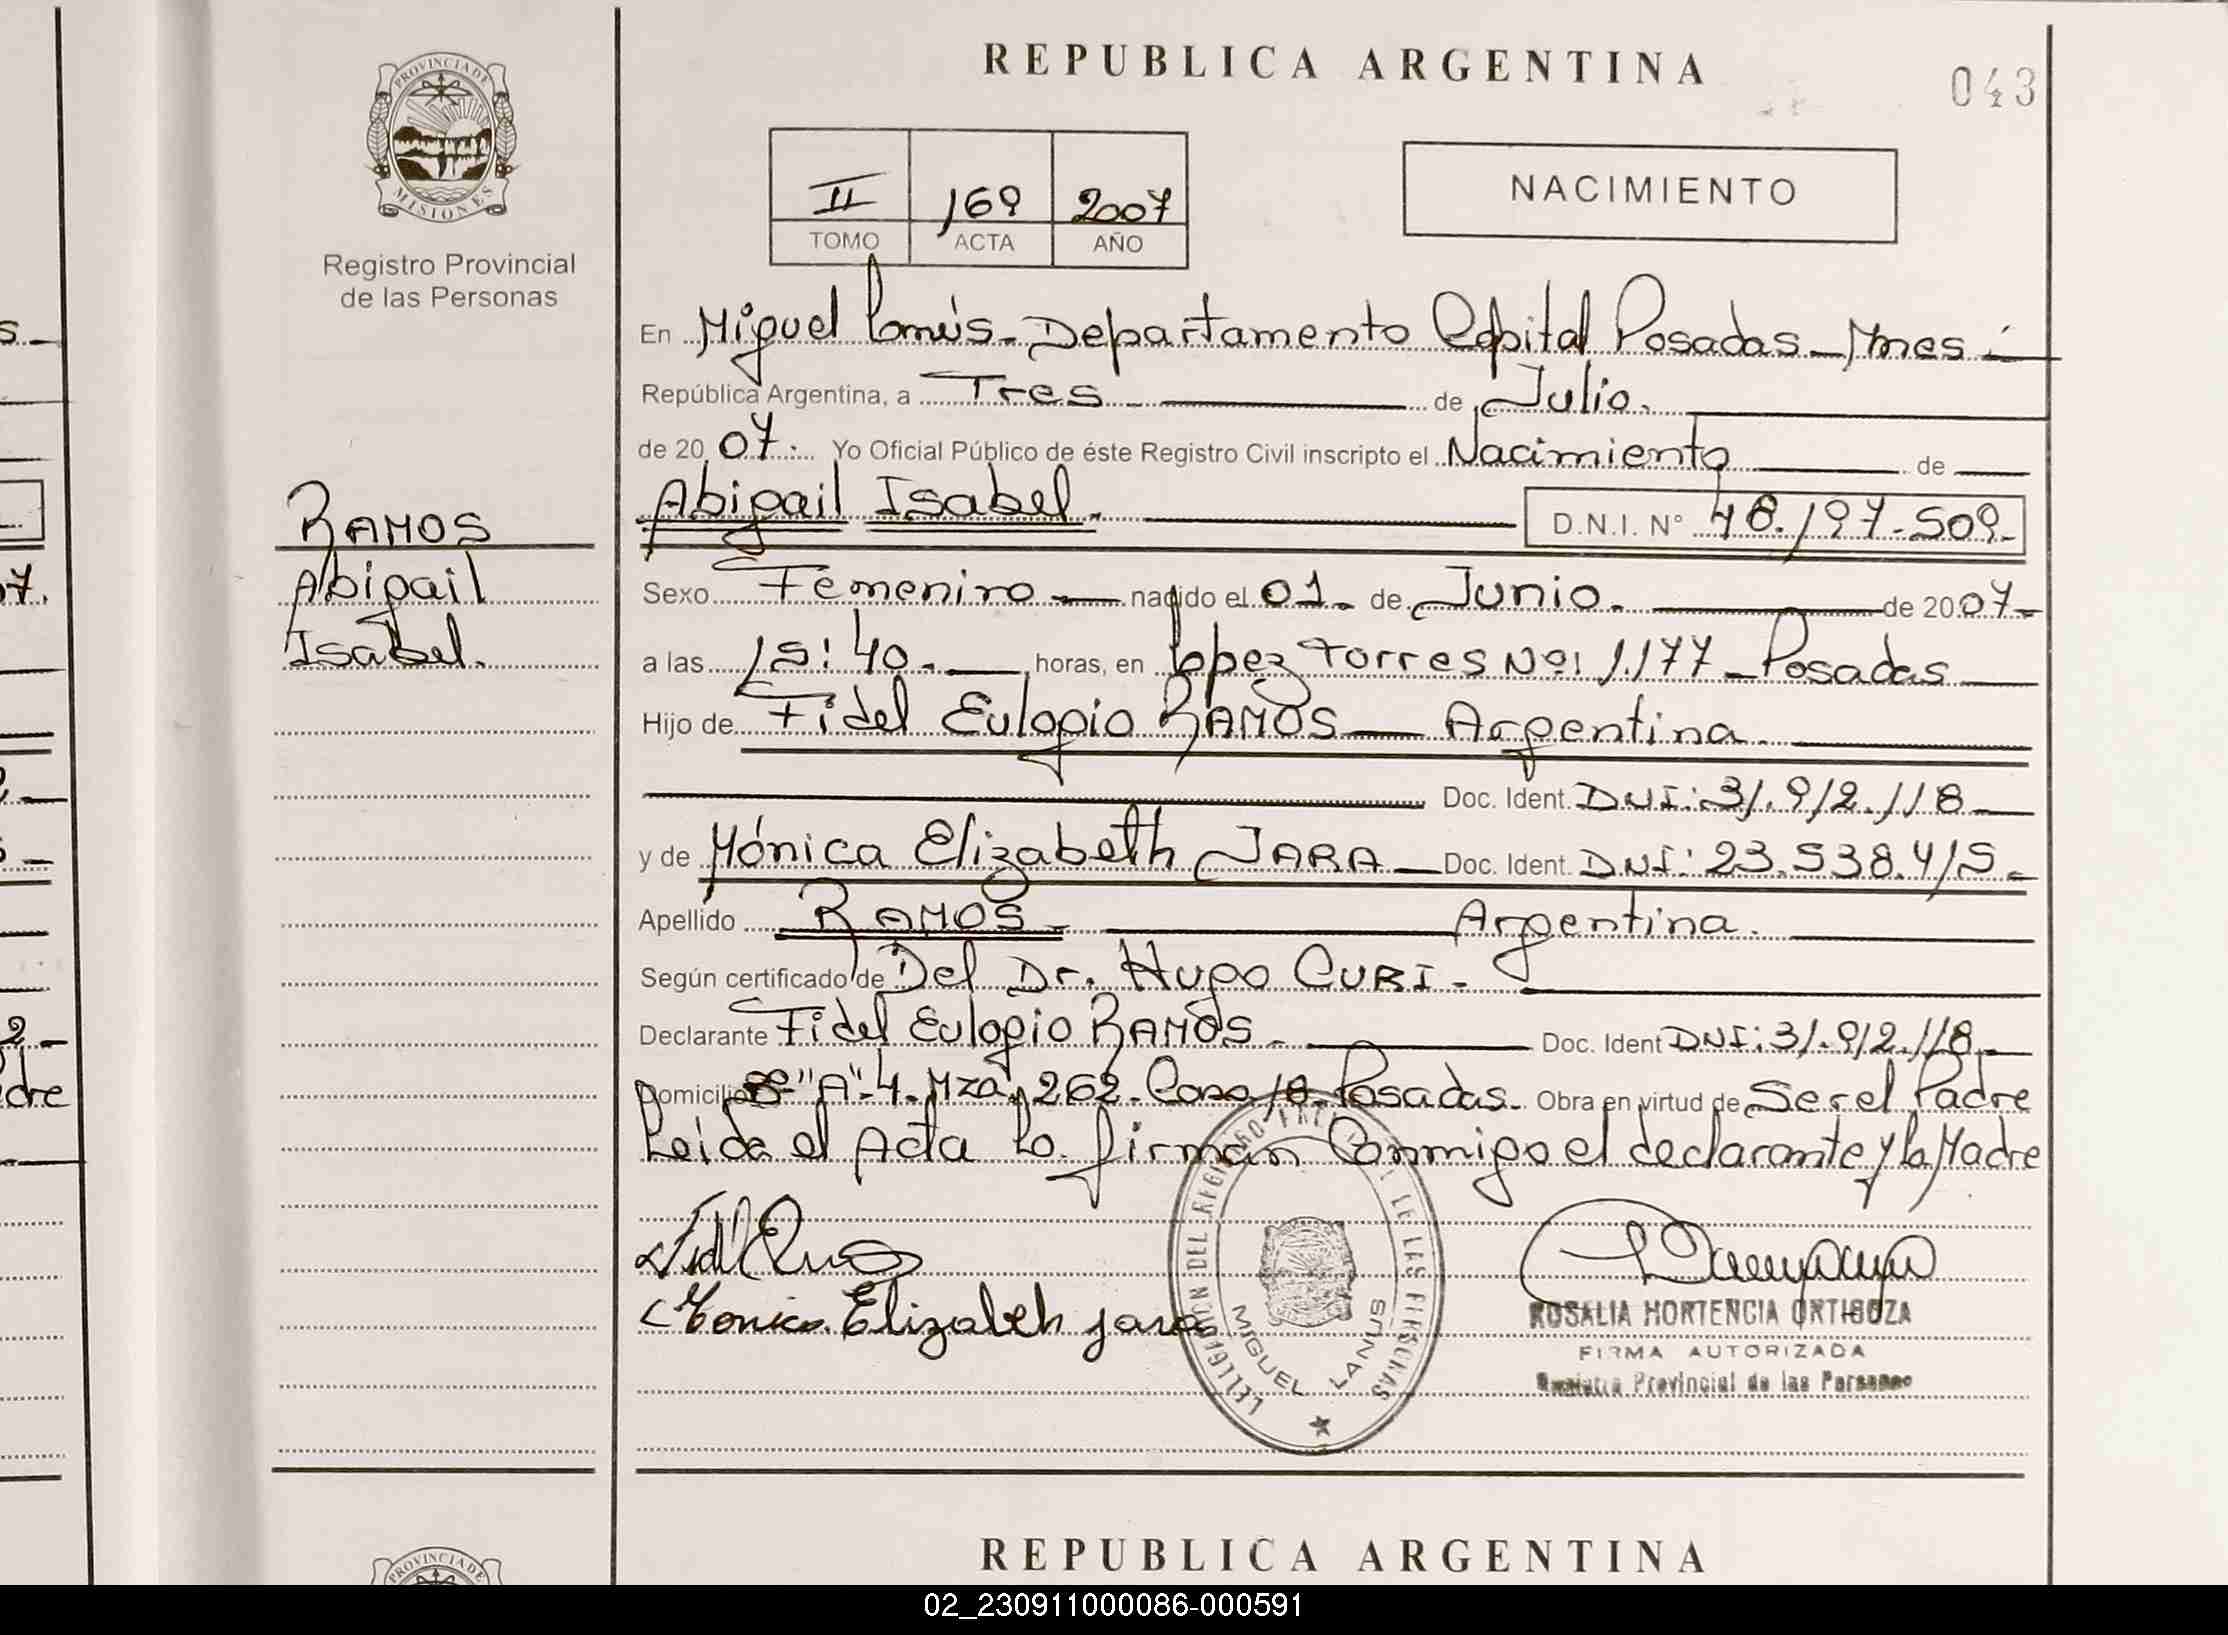 REPUBLICA ARGENTINA
043
PROVINCIA DE
MISIONES
Registro Provincial
de las Personas
II 169 2007
TOMO ACTA AÑO
NACIMIENTO
En Miguel Lanús - Departamento Capital Posadas - Mnes
República Argentina, a Tres de Julio.
de 20 07. Yo Oficial Público de éste Registro Civil inscripto el Nacimiento de
Abigail Isabel. D.N.I. N° 48.197.509.
RAMOS
Abigail
Isabel.
Sexo Femenino nacido el 01. de Junio. de 20 07
a las 15:40. horas, en Lopez Torres Nº: 1.177 - Posadas
Hijo de Fidel Eulogio RAMOS Argentina.
Doc. Ident. DNI: 31.912.118
y de Mónica Elizabeth JARA Doc. Ident. DNI: 23.538.415
Apellido RAMOS. Argentina.
Según certificado de Del Dr. Hugo CURI.
Declarante Fidel Eulogio RAMOS. Doc. Ident DNI: 31.912.118
Domicilio "A"-4. Mza. 262. Casa 18. Posadas. Obra en virtud de Ser el Padre
Leída el Acta la firman Conmigo el declarante y la Madre
Monica Elizabeth jara
MIGUEL LANUS
ROSALIA HORTENCIA ORTIGOZA
FIRMA AUTORIZADA
Registro Provincial de las Personas
REPUBLICA ARGENTINA
PROVINCIA DE
02_230911000086-000591